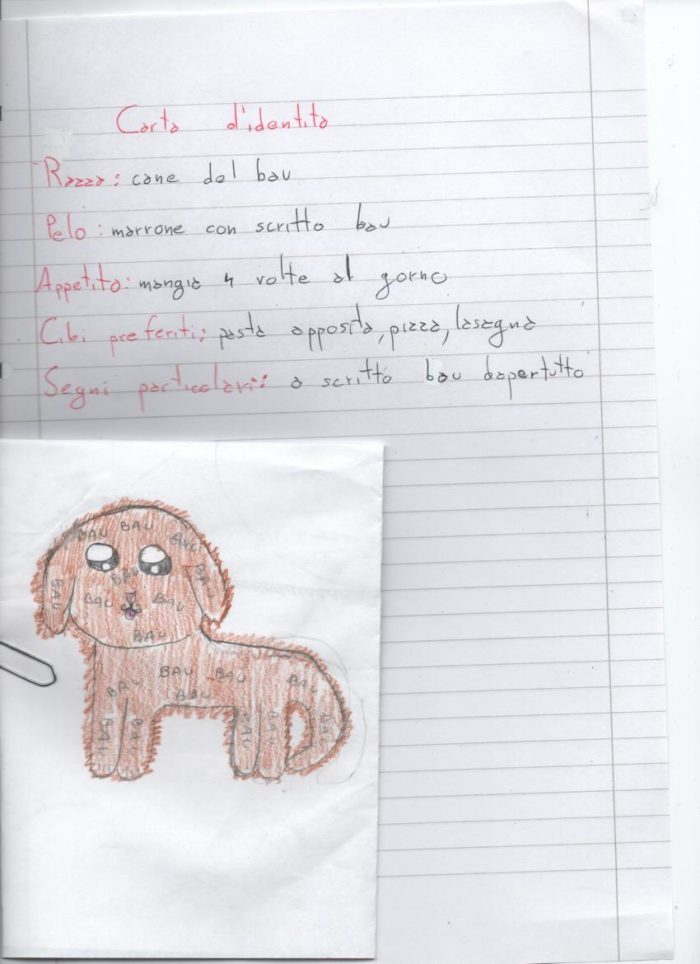 Carta d'identita
Razza: cane del bau
Pelo: marrone con scritto bau
Appetito: mangia 4 volte al gorno
Cibi preferiti: pasta apposita, pizza, lasagna
Segni particolari: a scritto bau dapertutto
BAU BAU BAU
BAU BAU BAU
BAU BAU
BAU
BAU BAU
BAU BAU BAU
BAU BAU BAU BAU BAU